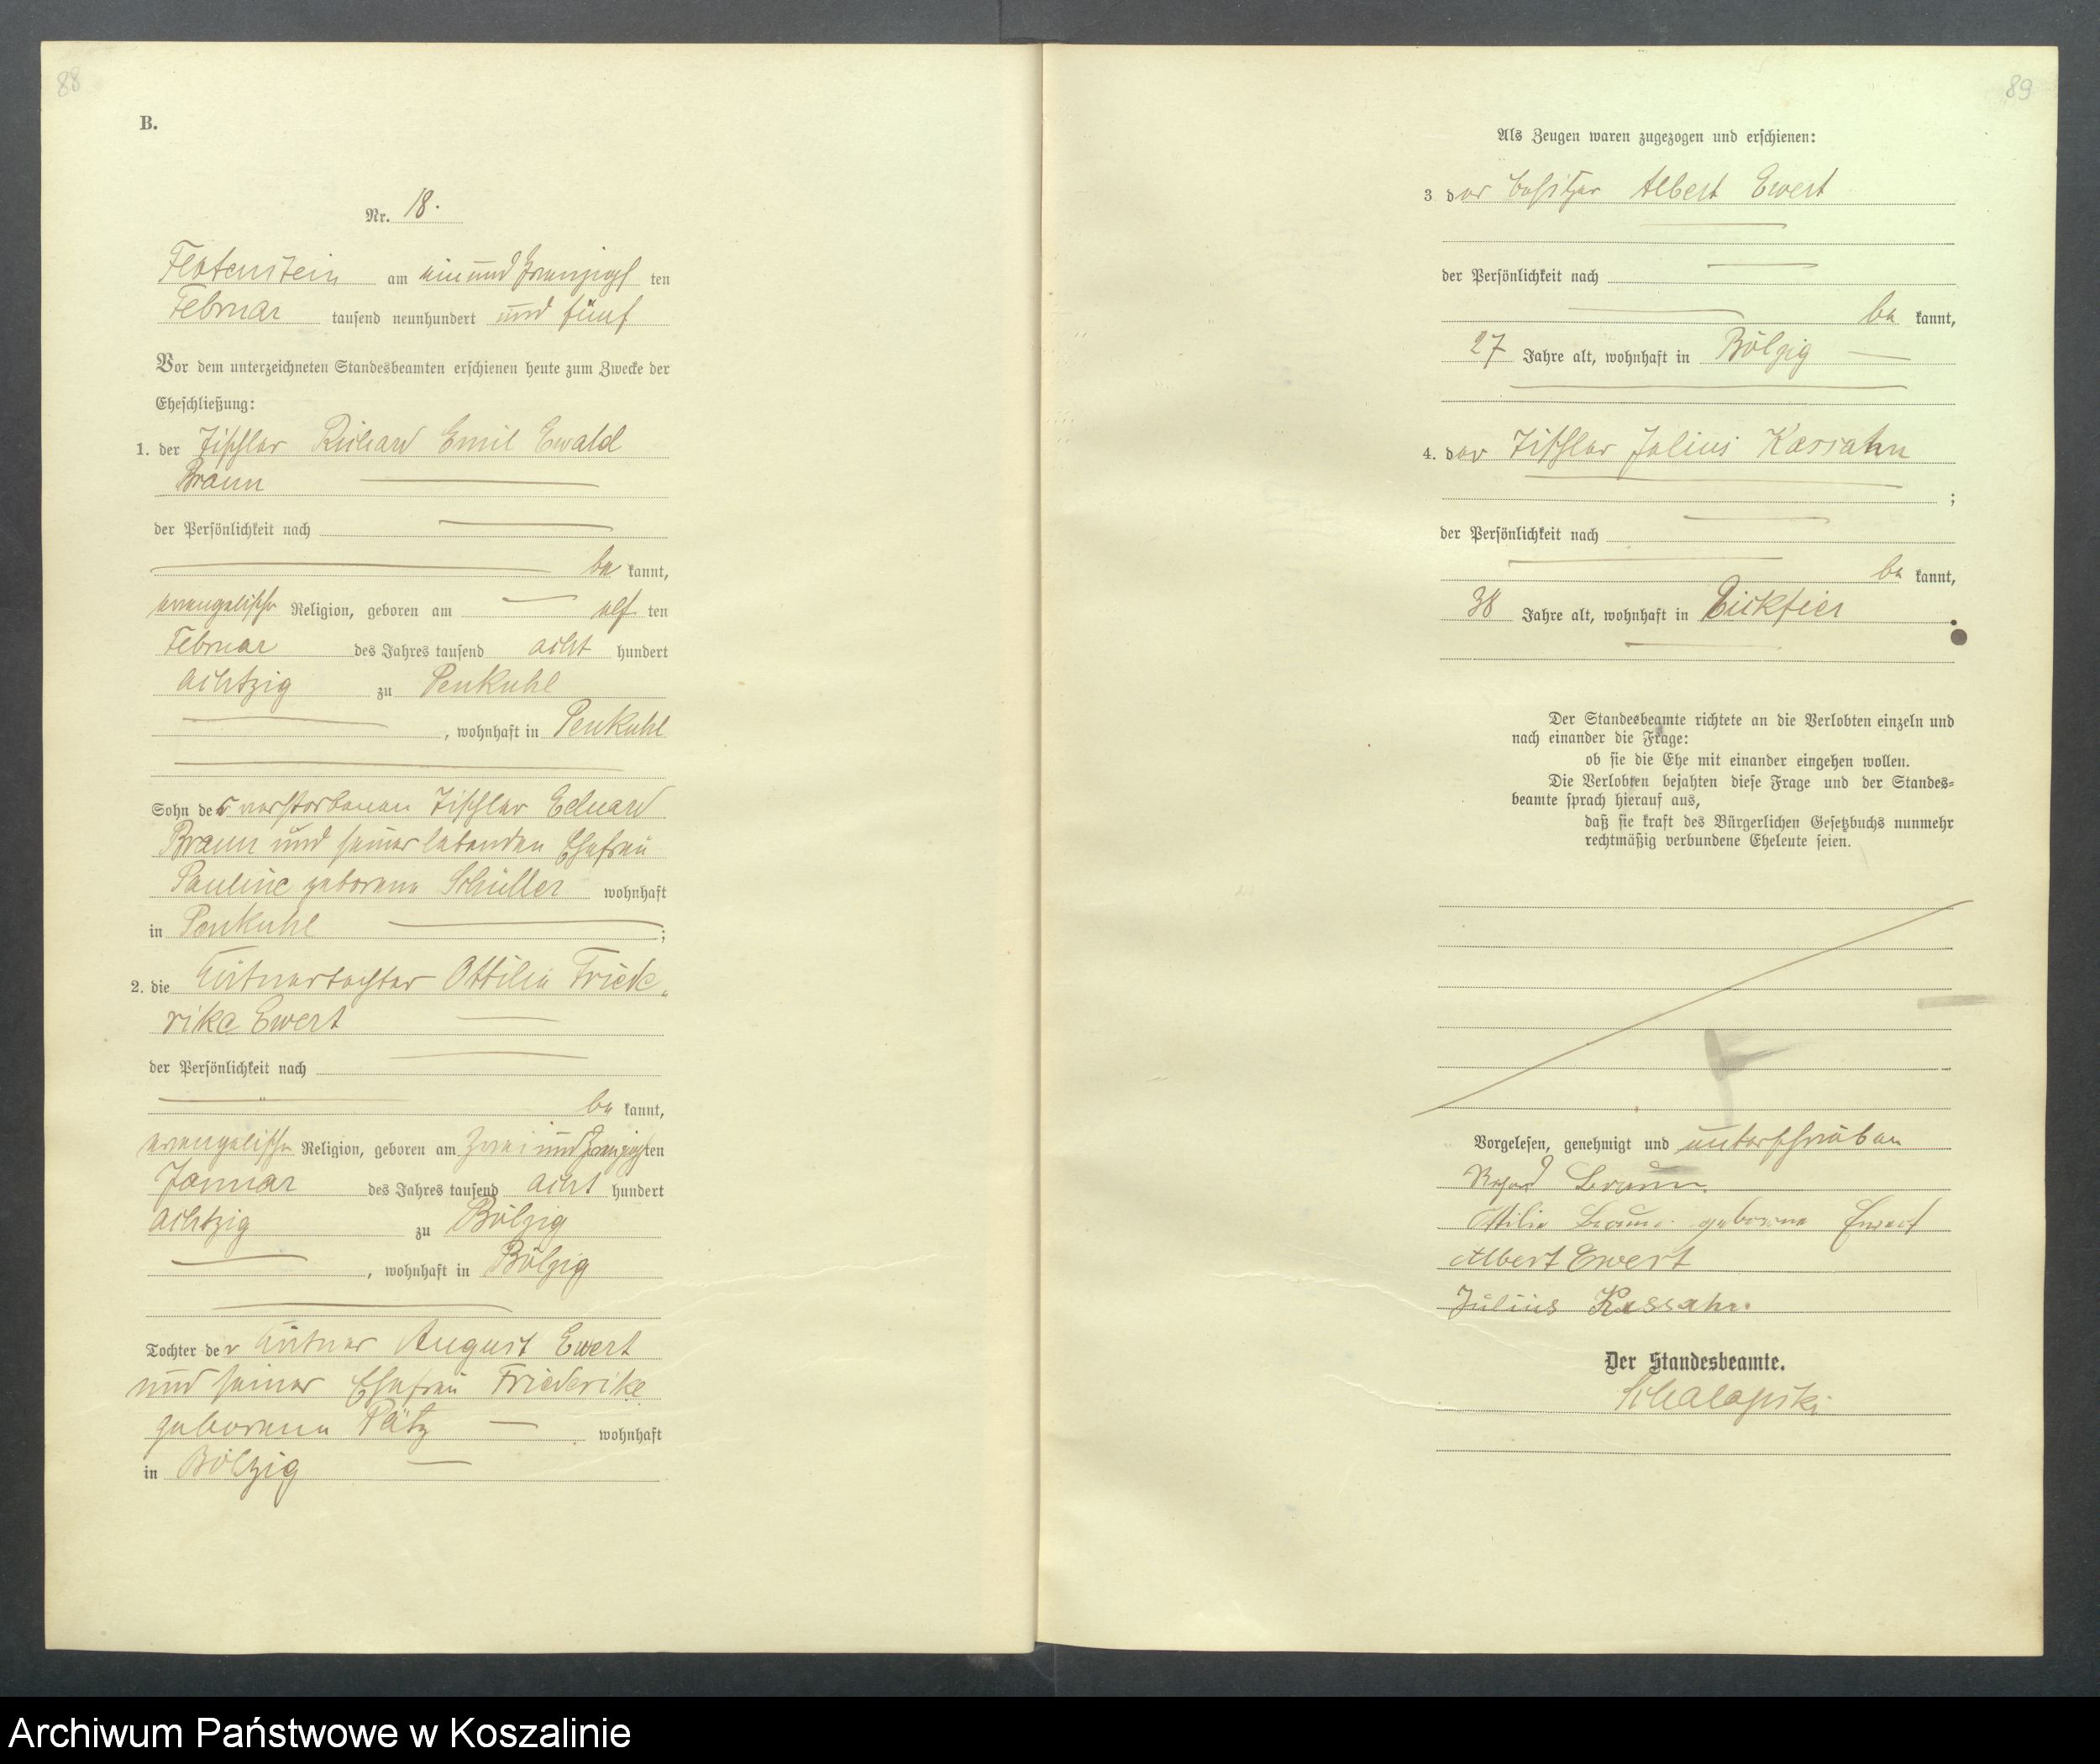 88
B.
Nr. 18.
Flötenstein am ein und zwanzigsten
Februar tausend neunhundert und fünf
Vor dem unterzeichneten Standesbeamten erschienen heute zum Zwecke der
Eheschließung:
1. der Tischler Richard Emil Ewald
Braun
der Persönlichkeit nach
be kannt,
evangelischer Religion, geboren am elf ten
Februar des Jahres tausend acht hundert
achtzig zu Penkuhl
, wohnhaft in Penkuhl
Sohn des verstorbenen Tischler Eduard
Braun und seiner lebenden Ehefrau
Pauline geborene Schüller wohnhaft
in Penkuhl ;
2. die Tochter Ottilie Friede-
rike Ewert
der Persönlichkeit nach
be kannt,
evangelischer Religion, geboren am zwei und zwanzigsten
Januar des Jahres tausend acht hundert
achtzig zu Bölzig
, wohnhaft in Bölzig
Tochter der August Ewert
und seiner Ehefrau Friederike
geborenen Pätz wohnhaft
in Bölzig
89
Als Zeugen waren zugezogen und erschienen:
3 der Besitzer Albert Ewert
der Persönlichkeit nach
be kannt,
27 Jahre alt, wohnhaft in Bölzig
4. der Tischler Julius Kassahn
;
der Persönlichkeit nach
be kannt,
38 Jahre alt, wohnhaft in Eickfier .
Der Standesbeamte richtete an die Verlobten einzeln und
nach einander die Frage:
ob sie die Ehe mit einander eingehen wollen.
Die Verlobten bejahten diese Frage und der Standes-
beamte sprach hierauf aus,
daß sie kraft des Bürgerlichen Gesetzbuchs nunmehr
rechtmäßig verbundene Eheleute seien.
Vorgelesen, genehmigt und unterschrieben
Richard Braun.
Ottilie Braun geborene Ewert
Albert Ewert
Julius Kassahn.
Der Standesbeamte.
Archiwum Państwowe w Koszalinie